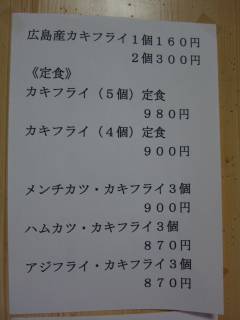 広島産カキフライ１個１６０円
２個３００円
《定食》
カキフライ（５個）定食
９８０円
カキフライ（４個）定食
９００円
メンチカツ・カキフライ３個
９００円
ハムカツ・カキフライ３個
８７０円
アジフライ・カキフライ３個
８７０円